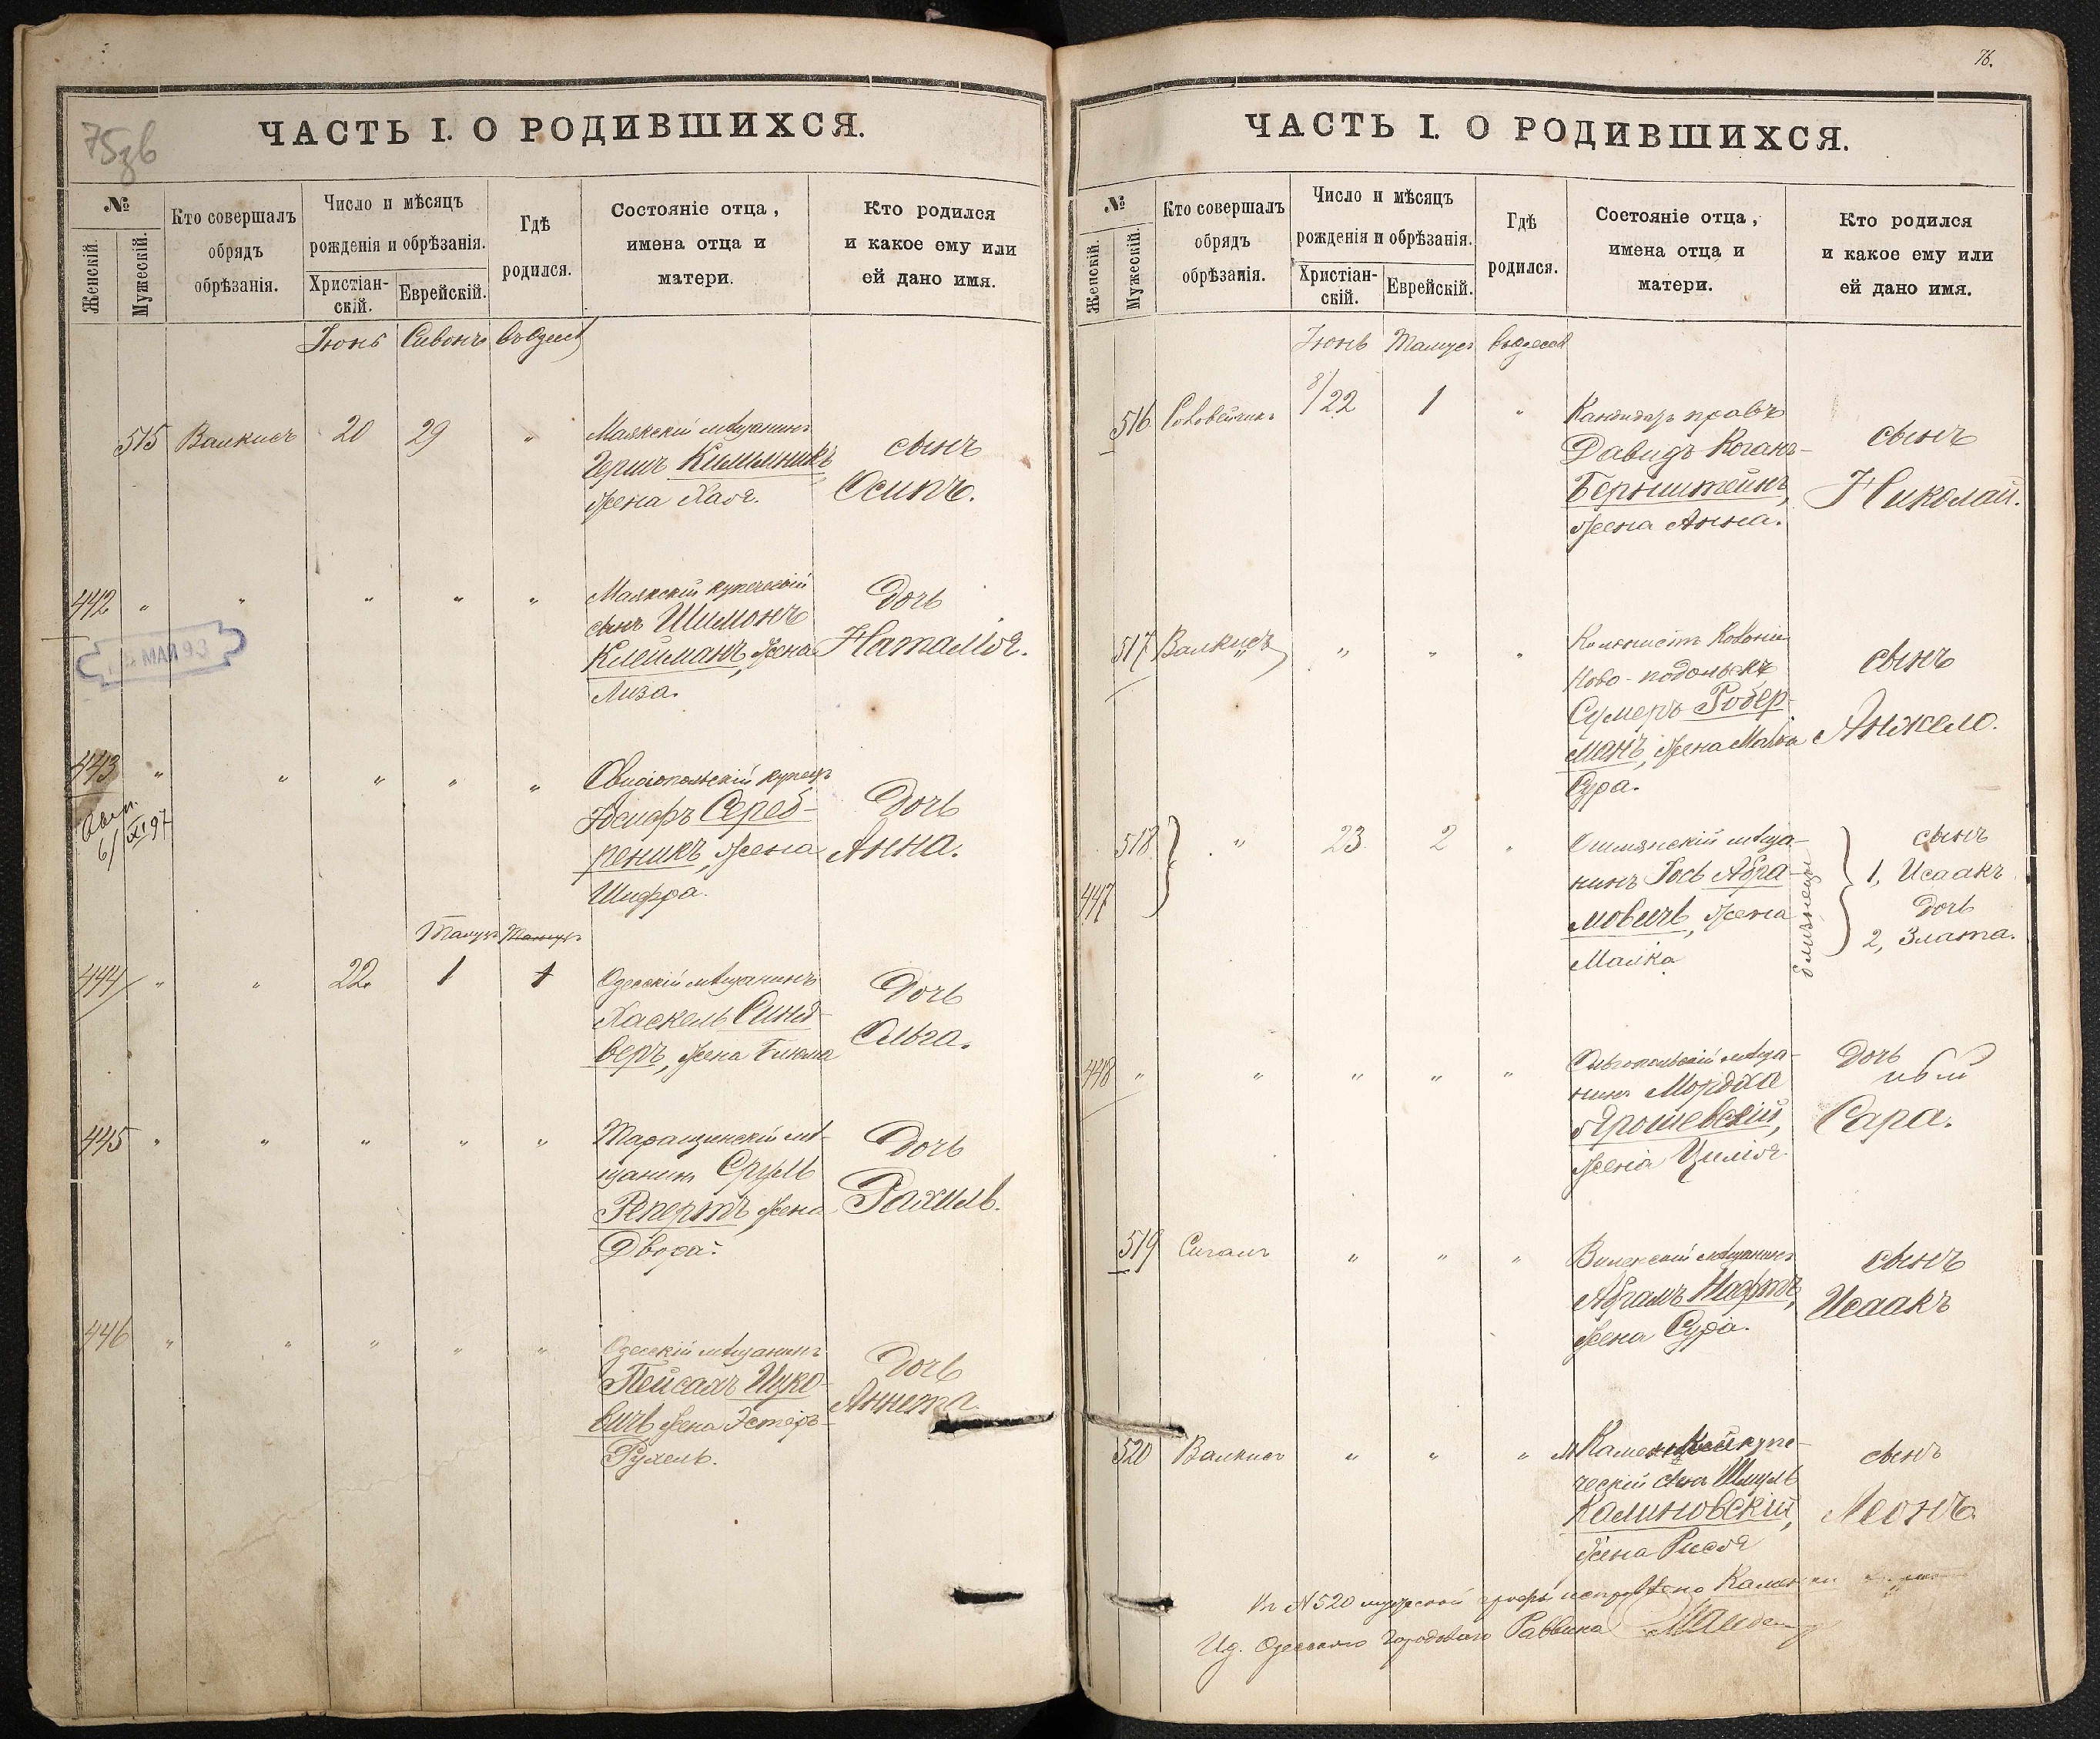 75зв
ЧАСТЬ I. О РОДИВШИХСЯ.
№
Женскій.
Мужескій.
Кто совершалъ
обрядъ
обрѣзанія.
Число и мѣсяцъ
рожденія и обрѣзанія.
Христіан-
скій.
Еврейскій.
Гдѣ
родился.
Состояніе отца,
имена отца и
матери.
Кто родился
и какое ему или
ей дано имя.
Іюнь Сивонъ въ Одессѣ
515 Валкисъ 20 29 "
Маякскій мѣщанинъ
Гершъ Кильмникъ
жена Хая.
сынъ
Осипъ.
442 " " " " "
Маякскій купеческій
сынъ Шимонъ
Клейманъ, жена
Лиза.
Дочь
Наталія.
МАЙ 93
443 " " " " "
6/XI 97
Овидіопольскій купецъ
Сереб-
реникъ, жена
Шифра.
Дочь
Анна.
Тамузъ Тамузъ
444 " " 22. 1 1
Одесскій мѣщанинъ
Хаскель Синя-
веръ, жена Блюма
Дочь
Ольга.
445 " " " " "
Таращанскій мѣ-
щанинъ Сруль
Репертъ, жена
Двора.
Дочь
Рахиль.
446 " " " " "
Одесскій мѣщанинъ
Пейсахъ Ицко-
вичъ жена Эстеръ-
Рухель.
Дочь
Аннета.
76.
ЧАСТЬ I. О РОДИВШИХСЯ.
№
Женскій.
Мужескій.
Кто совершалъ
обрядъ
обрѣзанія.
Число и мѣсяцъ
рожденія и обрѣзанія.
Христіан-
скій.
Еврейскій.
Гдѣ
родился.
Состояніе отца,
имена отца и
матери.
Кто родился
и какое ему или
ей дано имя.
Іюнь Тамузъ въ Одессѣ
516 Соловейчикъ 8/22 1 "
Кандидатъ правъ
Давидъ Коганъ-
Бернштейнъ,
жена Анна.
сынъ
Николай.
517 Валкисъ " " "
Колонистъ Колоніи
Ново-подольскъ
Сумеръ Робер-
манъ, жена Малка
Сура.
сынъ
Анжело.
518 " 23 2 "
447
Ошмянскій мѣща-
нинъ Іось Абра-
мовичъ, жена
Малка
близнецы
сынъ
1, Исаакъ
Дочь
2, Злата.
448 " " " " "
Ольгопольскій мѣща-
нинъ Мордха
Ярошевскій,
жена Цилія.
Дочь
Сара.
519 Сигалъ " " "
Виленскій мѣщанинъ
Абрамъ Нафтъ,
жена Сура.
сынъ
Исаакъ
520 Валкисъ " " "
купе-
ческій сынъ Шмуль
Калиновскій,
жена Рися
сынъ
Леонъ
По №520 мужеской графы исправлено
Ид. Одесскаго Городоваго Раввина